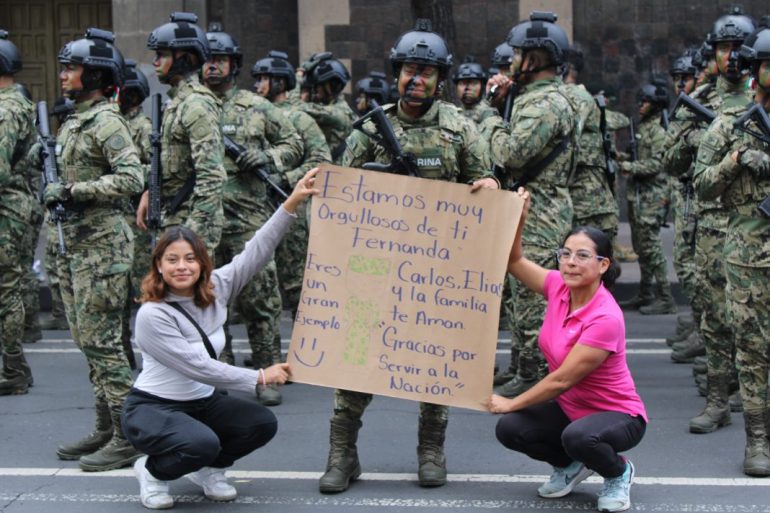 Estamos muy
Orgullosos de ti
Fernanda
Eres
un
Gran
Ejemplo
Carlos, Elias
y la familia
te Aman.
"Gracias por
Servir a la
Nación."
RINA